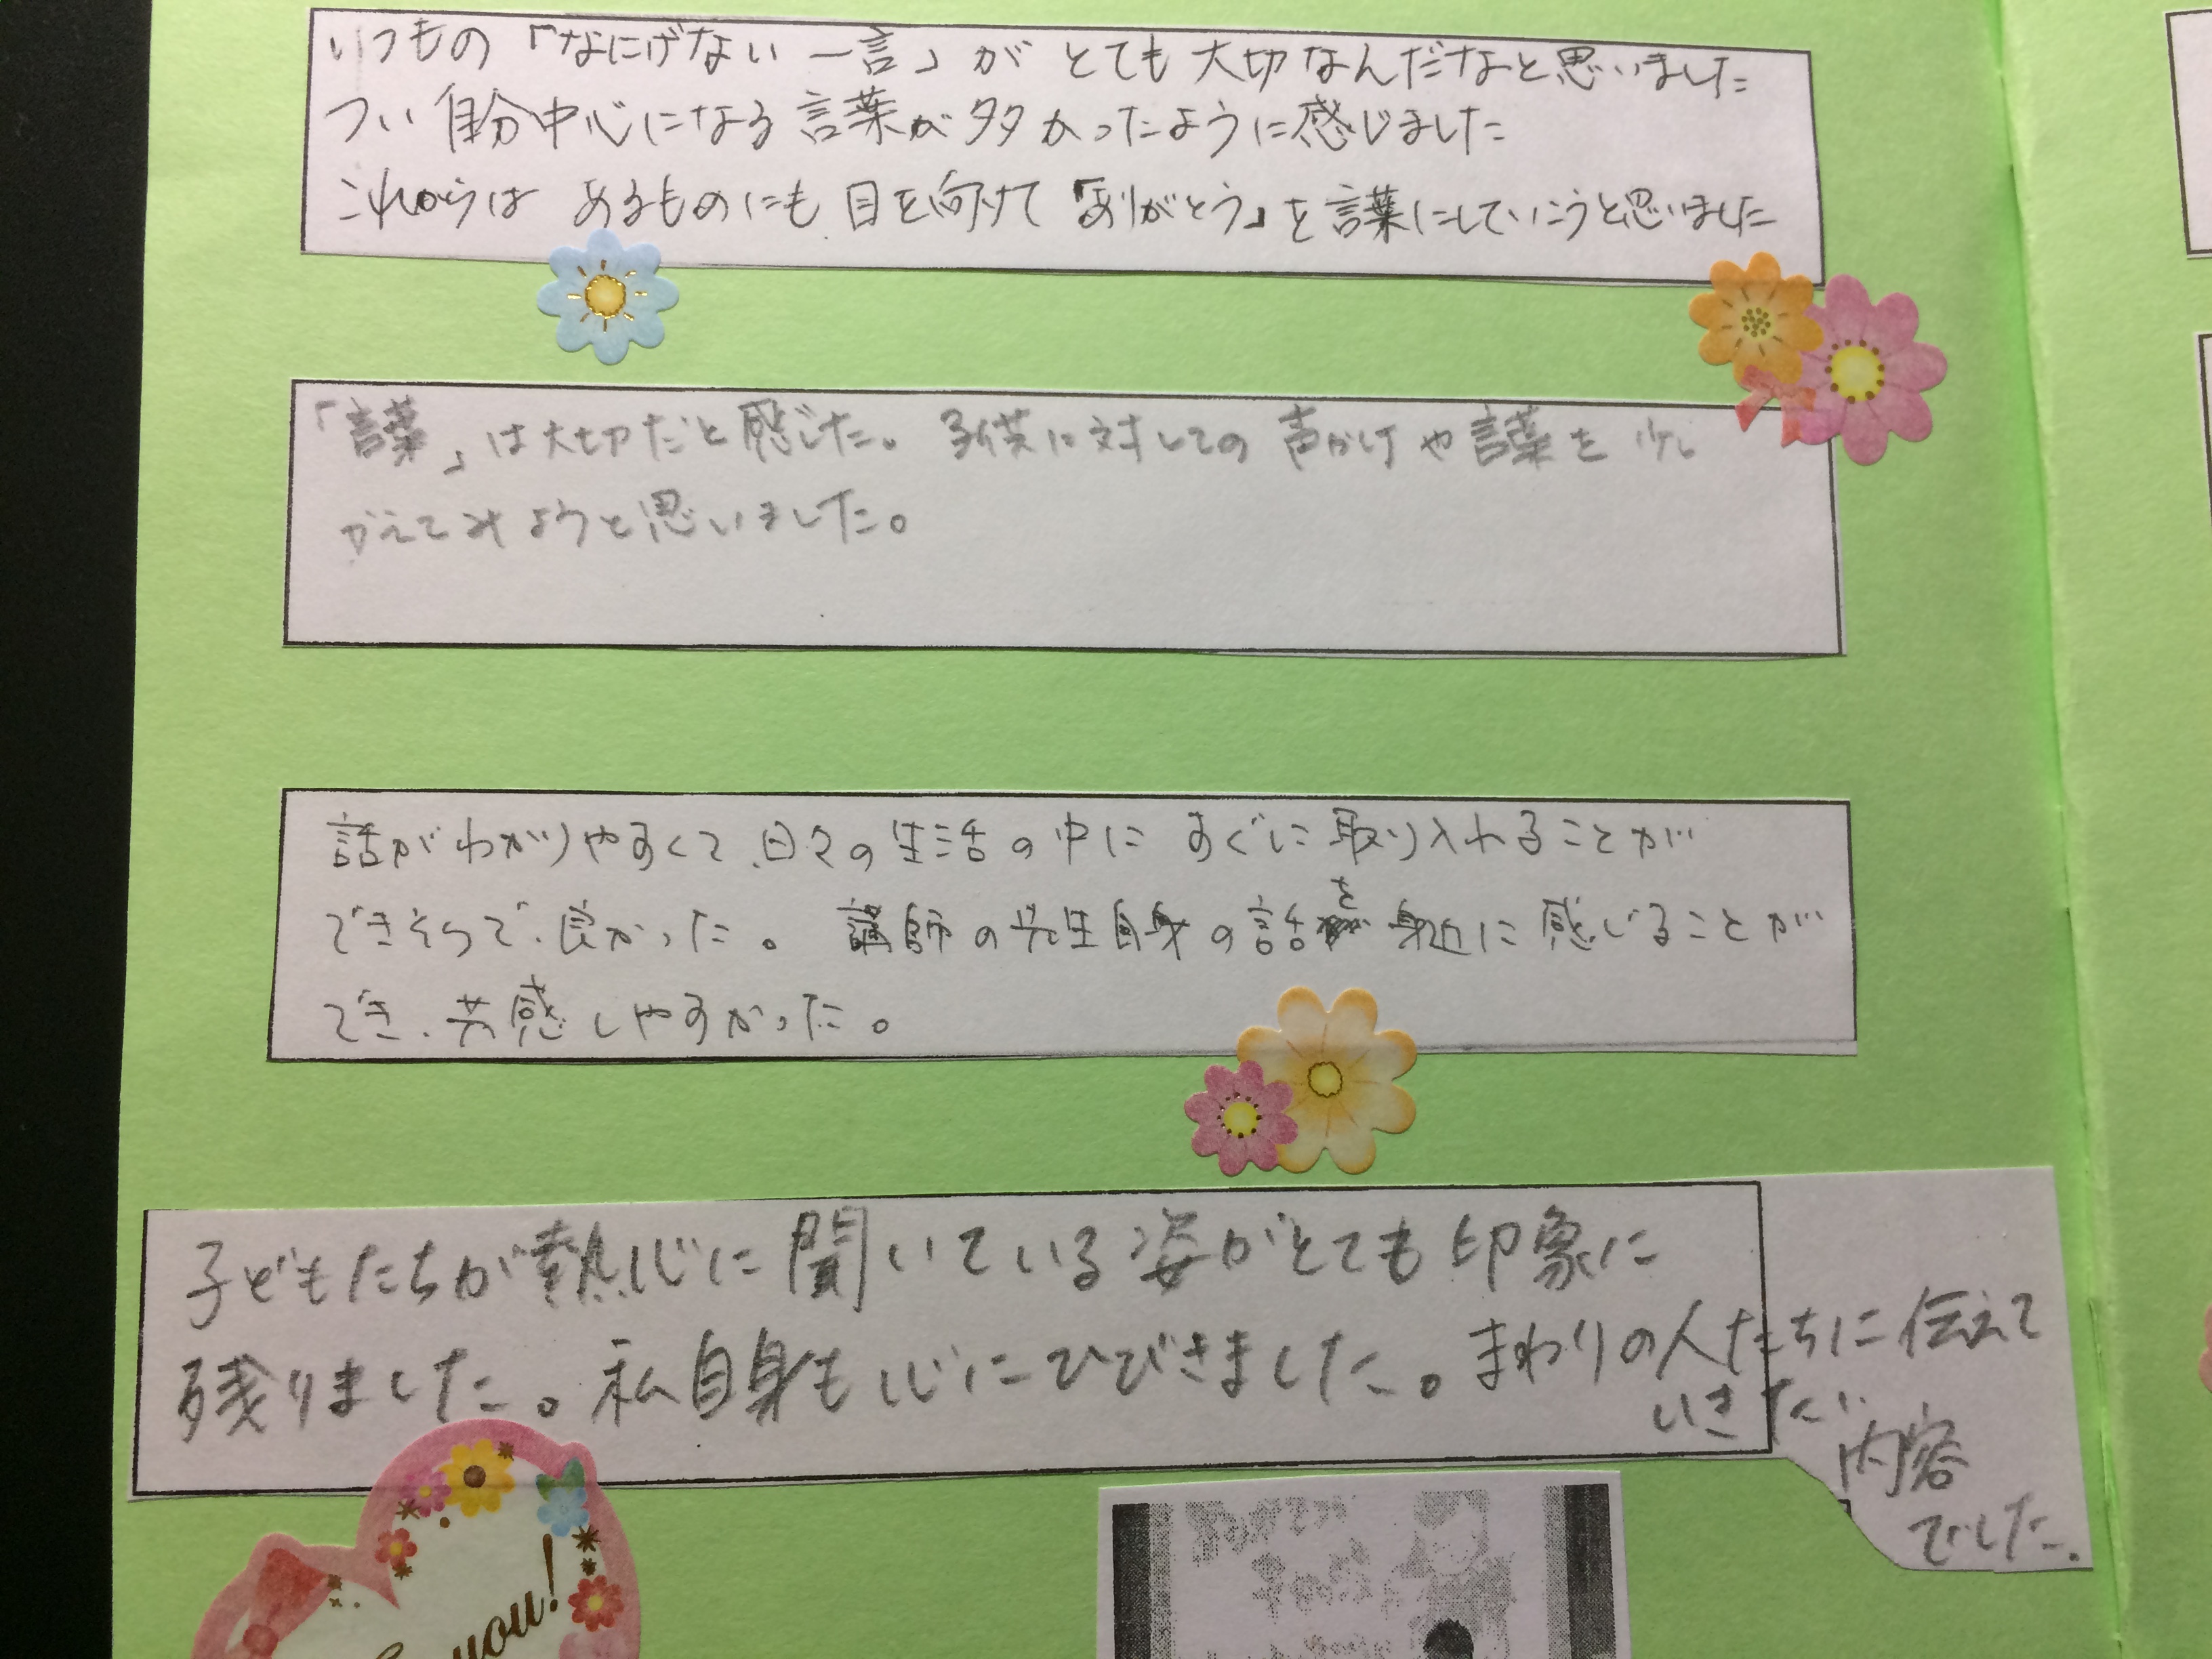 いつもの「なにげない一言」がとても大切なんだなと思いました
つい自分中心になる言葉が多かったように感じました
これからは あるものにも目を向けて「ありがとう」を言葉にしていこうと思いました
「言葉」は大切だと感じた。子供に対しての声かけや言葉を少し
かえてみようと思いました。
話がわかりやすくて、日々の生活の中にすぐに取り入れることが
できそうで、良かった。講師の先生自身の話を身近に感じることが
でき、共感しやすかった。
子どもたちが熱心に聞いている姿がとても印象に
残りました。私自身も心にひびきました。まわりの人たちに伝えて
いきたい
内容
でした.
you!